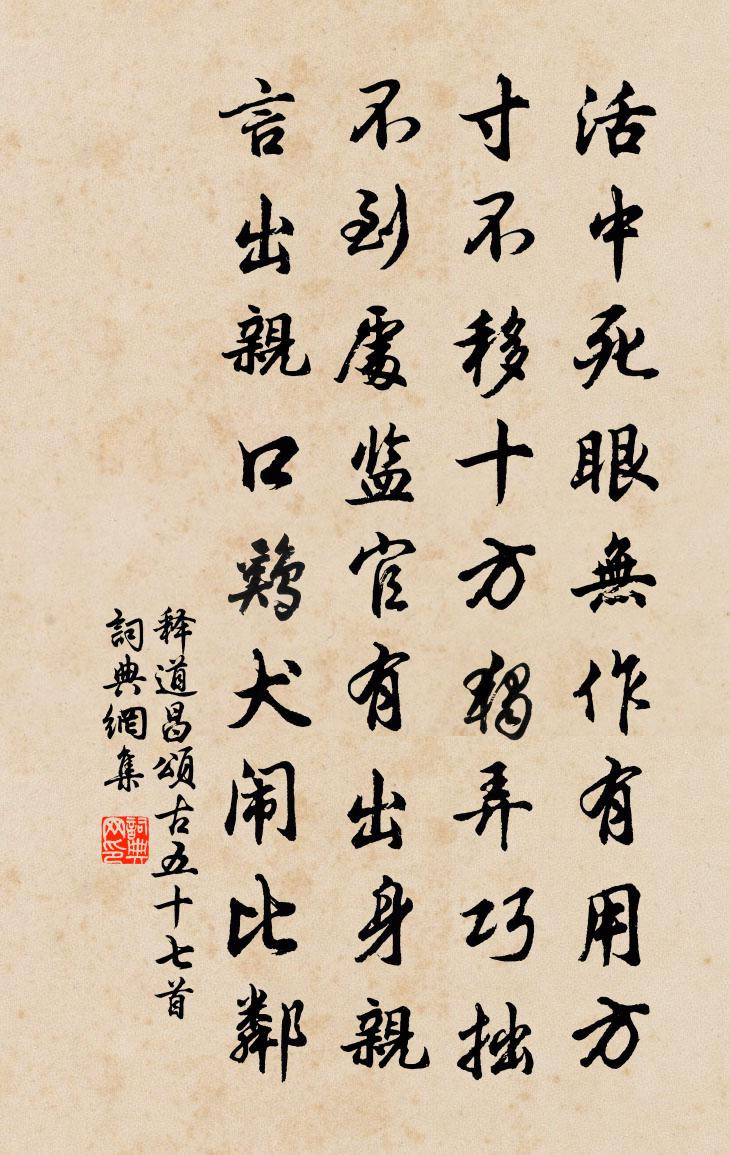 活中死眼無作有用方
寸不移十方獨弄巧拙
不到處监官有出身親
言出親口鷄犬闹比鄰
释道昌頌古五十七首
詞典網集
詞典网印